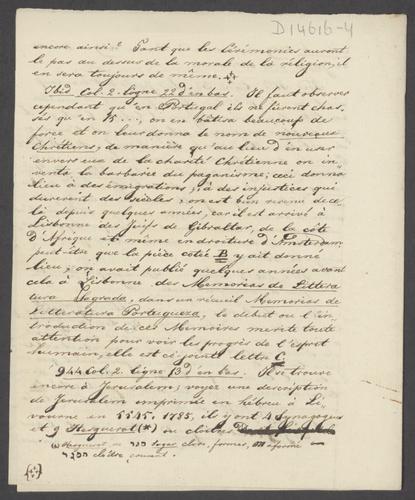 D 14616-4
encore ainsi? Tant que les Cérémonies auront
le pas du dessus de la morale de la réligion, il
en sera toujours de même.
Ibid. Col. 2. ligne 22 d'en bas. Il faut observer
cependant qu'en Portugal ils ne furent chas-
sés qu'en 15..., on en bâtisa beaucoup de
force et on leur donna le nom de nouveaux
Chrétiens, de manière qu'au lieu d'en user
envers eux de la charité Chrétienne on in-
venta la barbarie du paganisme; ceci donna
lieu à des émigrations, à des injustices qui
durerent des siècles; on est bien revenu de ce
là depuis quelques années, car il est arrivé à
Lisbonne des Juifs de Gibraltar, de la côte
D'Afrique et même en droiture d'Amsterdam
peut-être que la pièce cotié B y ait donné
lieu; on avait publié quelques années avant
cela à Lisbonne des Memorias de Littera
tura Sagrada, dans un récueil Memorias de
Litteratura Portugueza, le debut ou l'in-
troduction de ces Memoires merite toute
attention pour voir les progrès de l'esprit
humain, elle est ci-jointe lettre C.
944 Col. 2. ligne 13 d'en bas. Il se trouve
encore à Jerusalem; voyez une description
de Jerusalem imprimée en hébreu à Li-
vourne en 5545. 1785. il y ont 4 Synagogues
et 9 Hesguerot (*) ou cloîtres
(*) Hesguerot de סגר sagar clore, fermer,
הסגר cloître couvent.